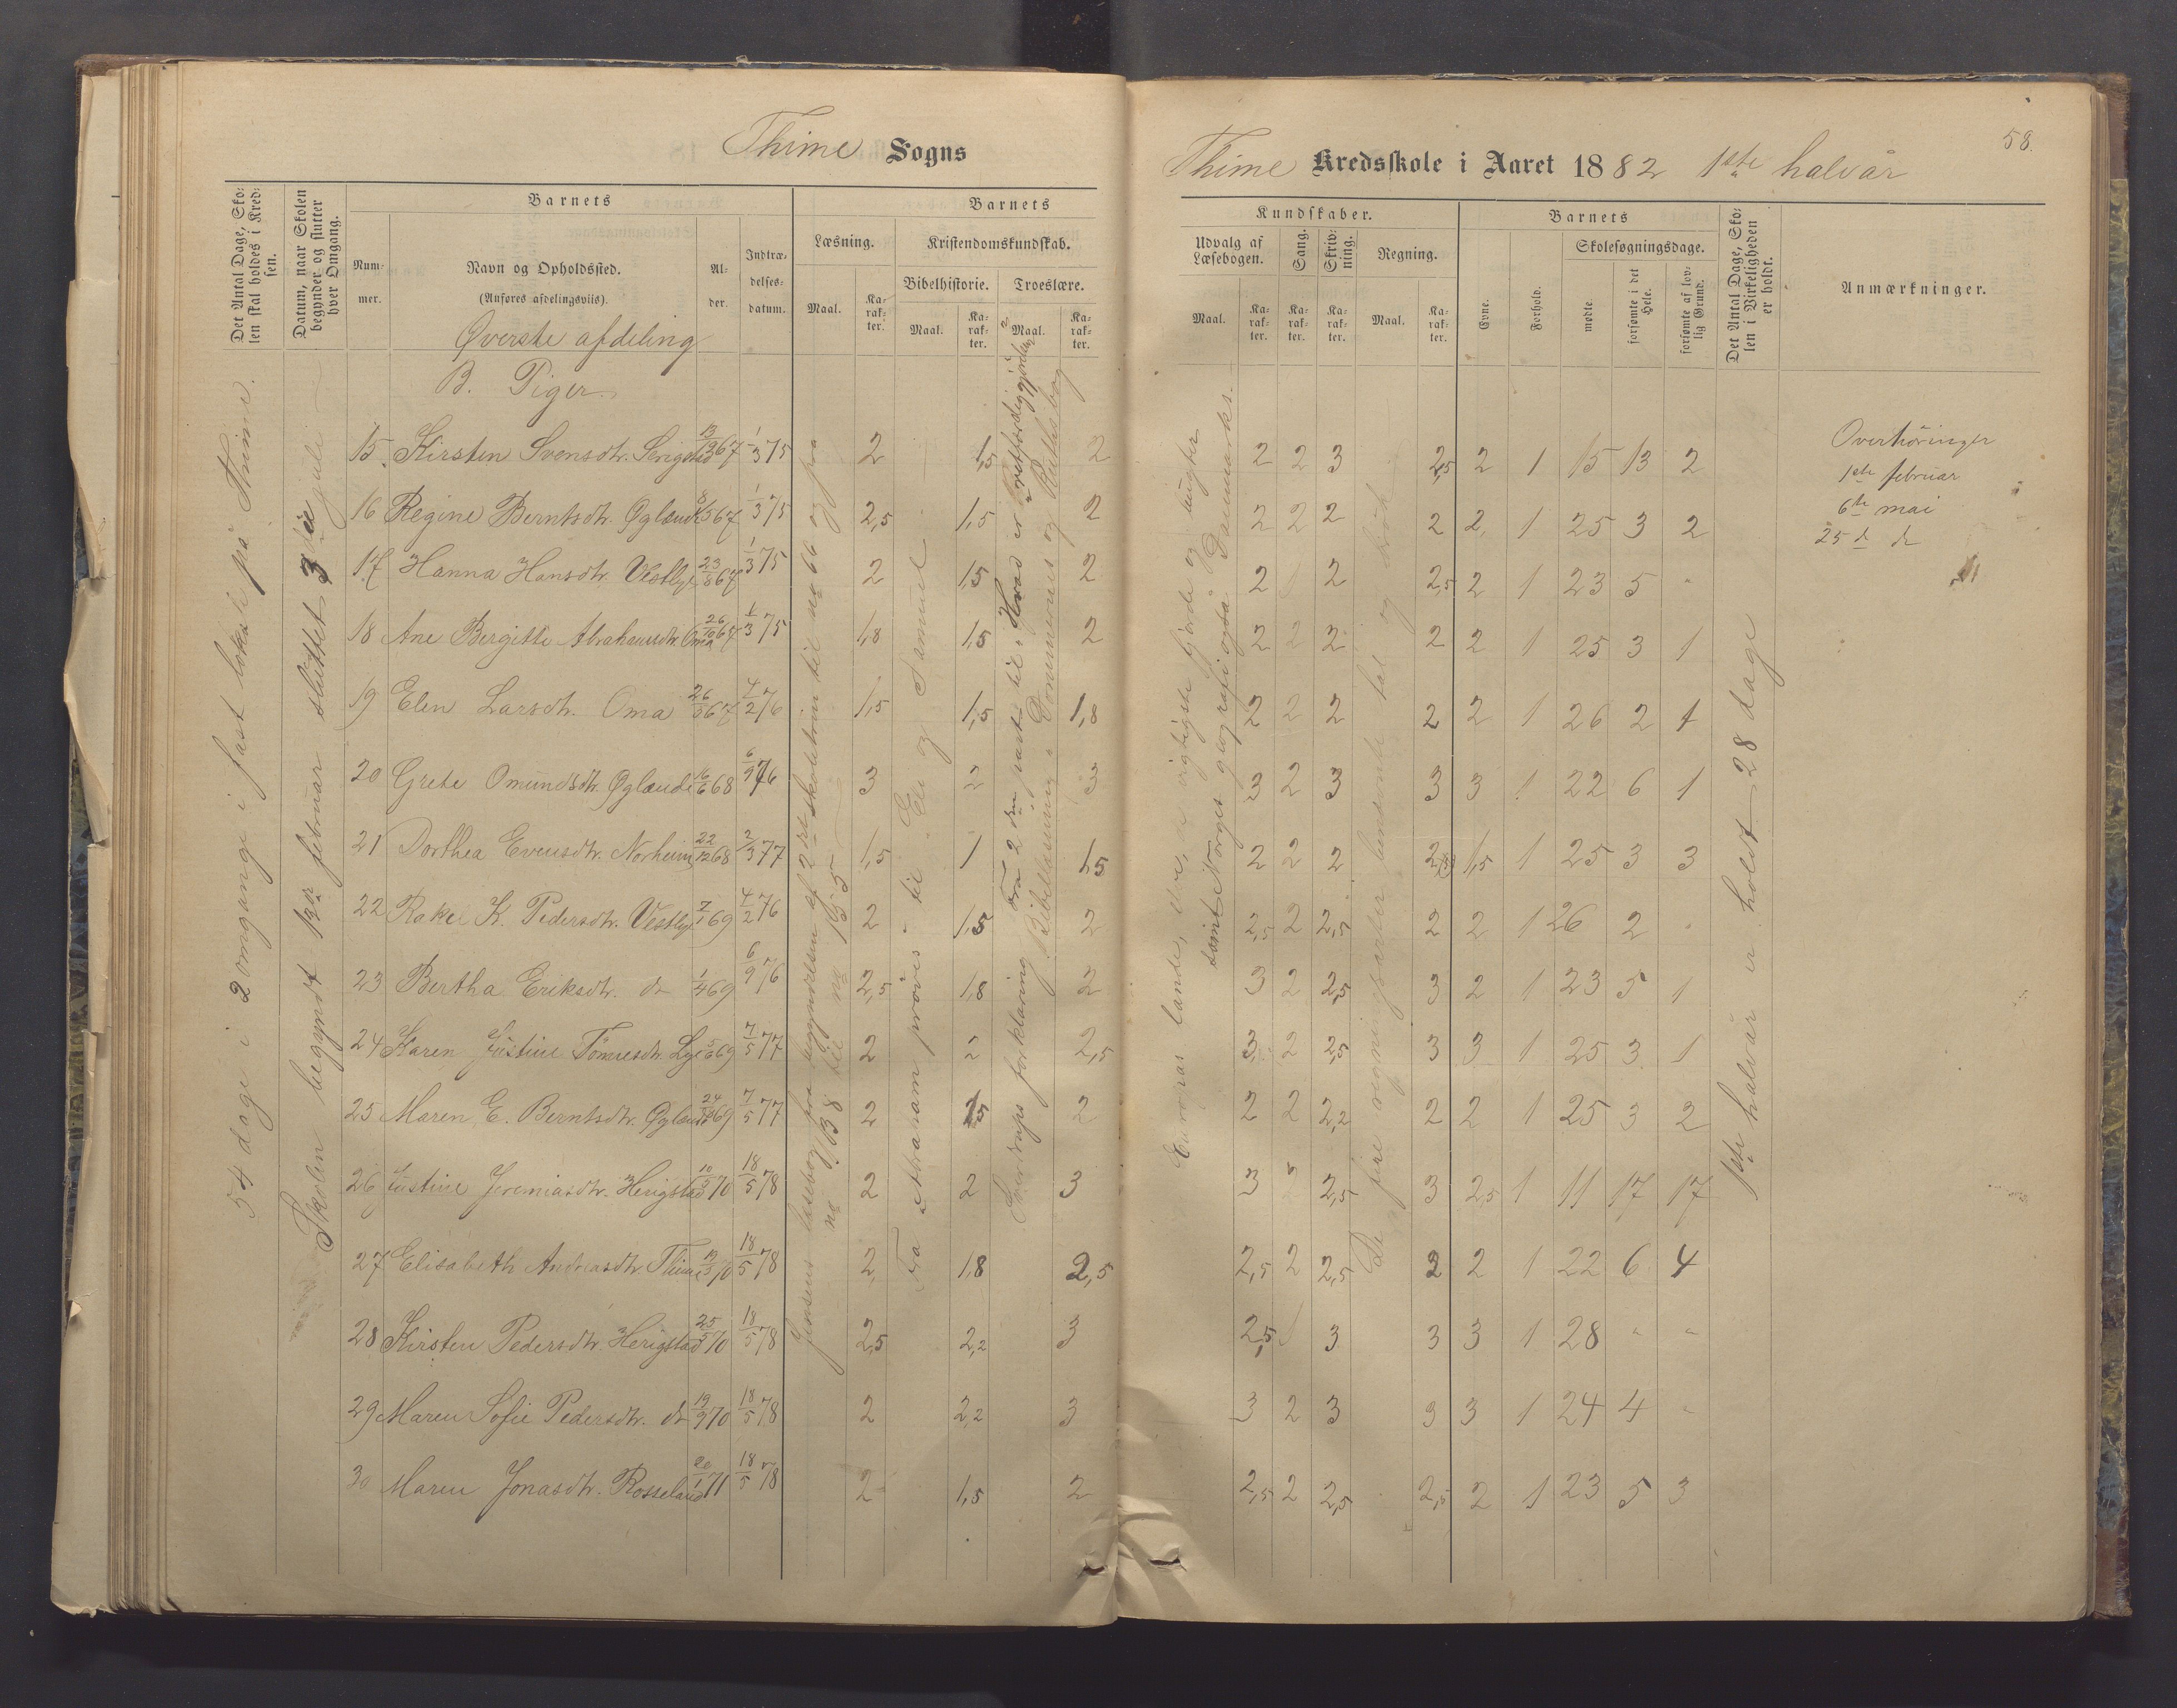 Thime Sogns
Det Antal Dage, Sko-
len skal holdes i Kred-
sen.
Datum, naar Skolen
begynder og slutter
hver Omgang.
Barnets
Num-
mer.
Navn og Opholdssted.
(Anføres afdelingsviis).
Al-
der.
Indtræ-
delses-
datum.
Barnets
Læsning.
Kristendomskundskab.
Bibelhistorie.
Troeslære.
Maal.
Ka-
rak-
ter.
Maal.
Ka-
rak-
ter.
Maal.
Ka-
rak-
ter.
Øverste afdeling
B. Piger
54 dage i 2 omgange i fast lokale på Thime.
Skolen begyndt 1ste februar sluttet 3die juli
15 Kirsten Svensdtr. 13/9 67 1/3 75 2 1,5 2
16 Regine Berntsdtr. Øglænd 8/5 67 1/3 75 2,5 1,5 2
17 Hanna Hansdtr. Vestlye 23/8 67 1/3 75 2 1,5 2
18 Ane Bergitte Abrahamsdtr. Oma 26/10 67 1/3 75 1,8 1,5 2
19 Elen Larsdtr. Oma 26/5 67 4/2 76 1,5 1,5 1,8
20 Grete Omundsdtr. Øglænd 16/6 68 6/9 76 3 2 3
21 Dorthea Evensdtr. Norheim 22/12 68 2/3 77 1,5 1 1,5
22 Rakel K. Pedersdtr. Vestlye 7/1 69 4/2 76 2 1,5 2
23 Bertha Eriksdtr. do 1/4 69 6/9 76 2,5 1,8 2
24 Karen Justine Tönnesdtr. Lye 5/6 69 7/5 77 2 2 2,5
25 Maren E. Berntsdtr. Øglænd 24/10 69 7/5 77 2 1,5 2
26 Justine Jeremiasdtr. Herigstad 10/3 70 18/5 78 2 2 3
27 Elisabeth Andreasdtr. Thime 13/3 70 18/5 78 2 1,8 2,5
28 Kirsten Pedersdtr. Herigstad 25/5 70 18/5 78 2,5 2,2 3
29 Maren Sofie Pedersdtr. do 19/9 70 18/5 78 2 2,2 3
30 Maren Jonasdtr. Rosseland 20/1 71 18/5 78 2 1,5 2
Jensens læsebog fra begyndelsen af 2det skoletrin til no 66 og fra
no 138 til no 155
Fra "Abraham prøves" til "Eli og Samuel"
Sverdrups forklaring fra 2den part til "Hvad er retfærdiggjørelse"
Bibellæsning: Dommernes og Ruths bog
58.
Thime Kredsskole i Aaret 1882 1ste halvår
Kundskaber.
Udvalg af
Læsebogen.
Sang.
Skriv-
ning.
Regning.
Maal.
Ka-
rak-
ter.
Ka-
rak-
ter.
Ka-
rak-
ter.
Maal.
Ka-
rak-
ter.
Barnets
Evne.
Forhold.
Skolesøgningsdage.
mødte.
forsømte i det
Hele.
forsømte af lov-
lig Grund.
Det Antal Dage, Sko-
len i Virkeligheden
er holdt.
Anmærkninger.
Europas lande, elve, vigtigste fjorde og bugter
samt Norges geografi også Danmarks.
De fire regningsarter i benævnte tal og brök
1ste halvår er holdt 28 dage
Overhöringer
1ste februar
6te mai
25de do
2 2 3 2,5 2 1 15 13 2
2 2 2 2 2 1 25 3 2
2 1 2 2,5 2 1 23 5 "
2 2 2 2 2 1 25 3 1
2 2 2 2 2 1 26 2 1
3 2 3 3 3 1 22 6 1
2 2 2 2,5 1,5 1 25 3 3
2,5 2 2,5 2 2 1 26 2 "
3 2 2,5 3 2 1 23 5 1
3 2 2,5 3 3 1 25 3 1
2 2 2,2 2 2 1 25 3 2
3 2 2,5 3 2,5 1 11 17 17
2,5 2 2,5 2 2 1 22 6 4
2,5 1 3 3 3 1 28 " "
3 2 3 3 3 1 24 4 "
2,5 2 2,5 2,5 2 1 23 5 3